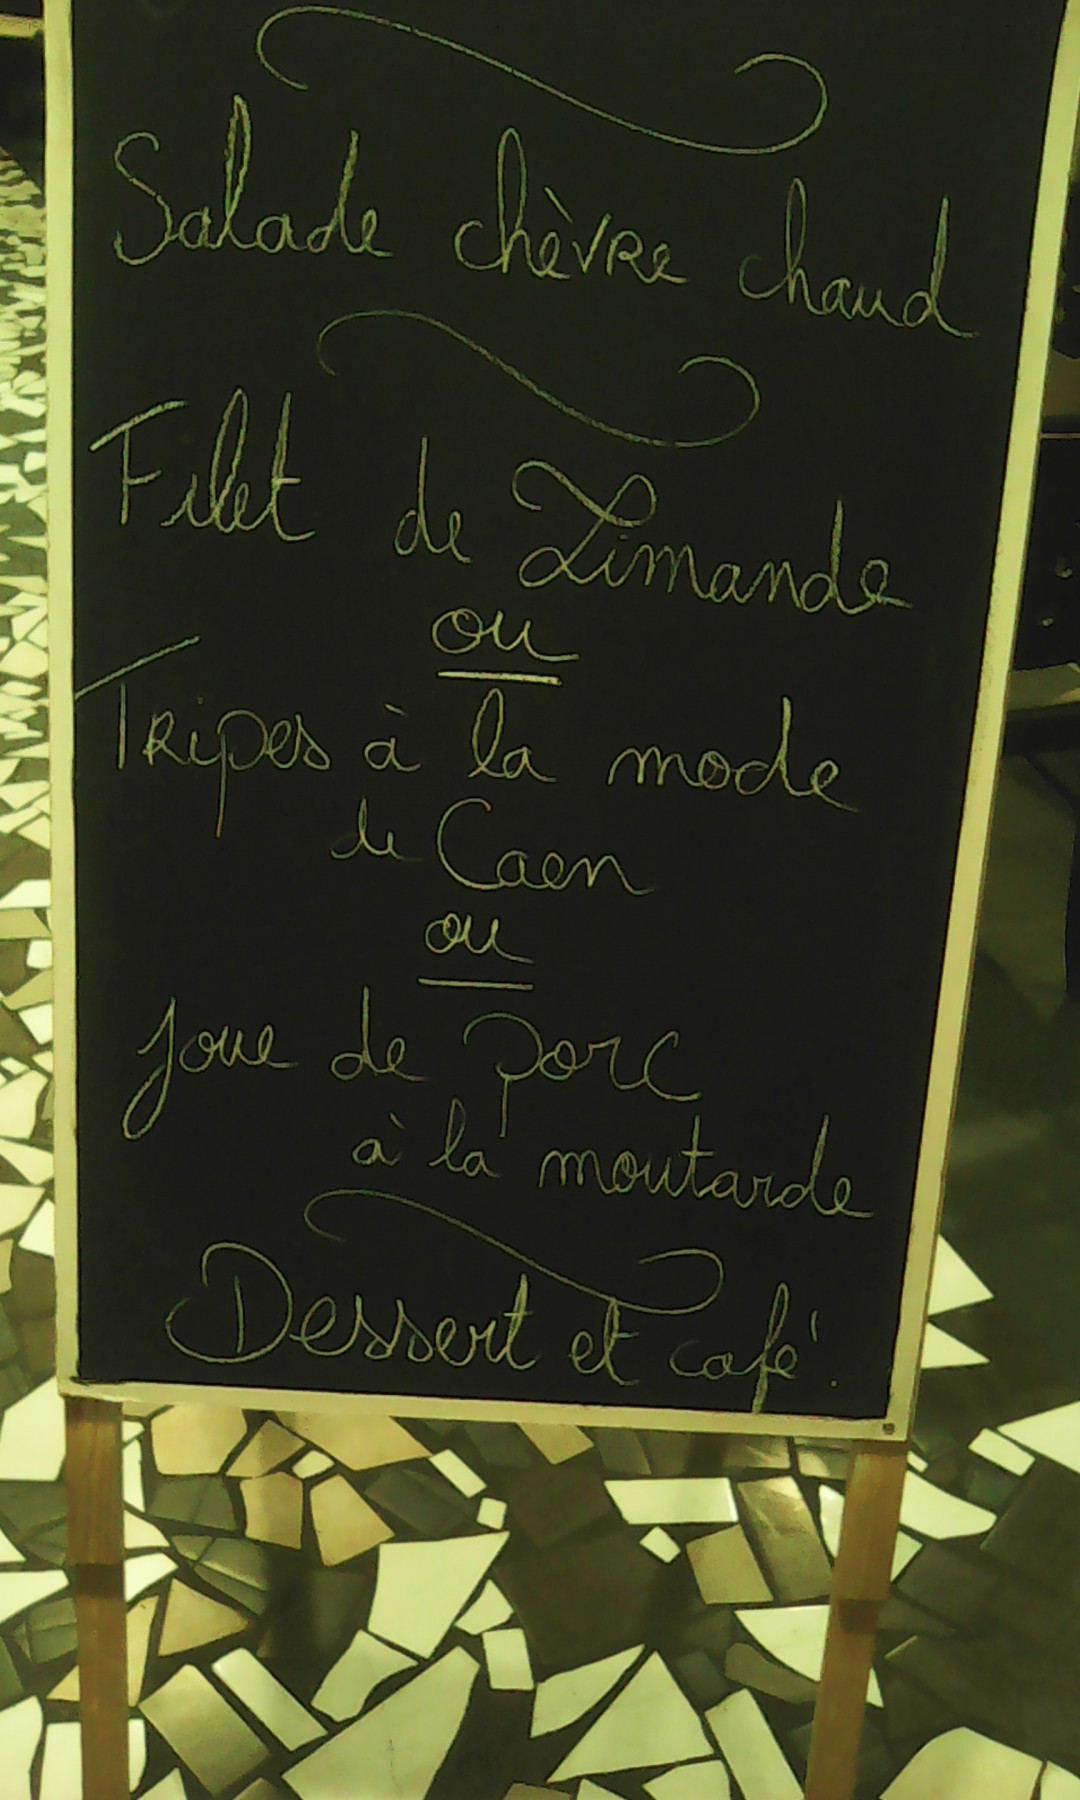 Salade chèvre chaud
Filet de Limande
ou
Tripes à la mode
de Caen
ou
Joue de porc
à la moutarde
Dessert et café.